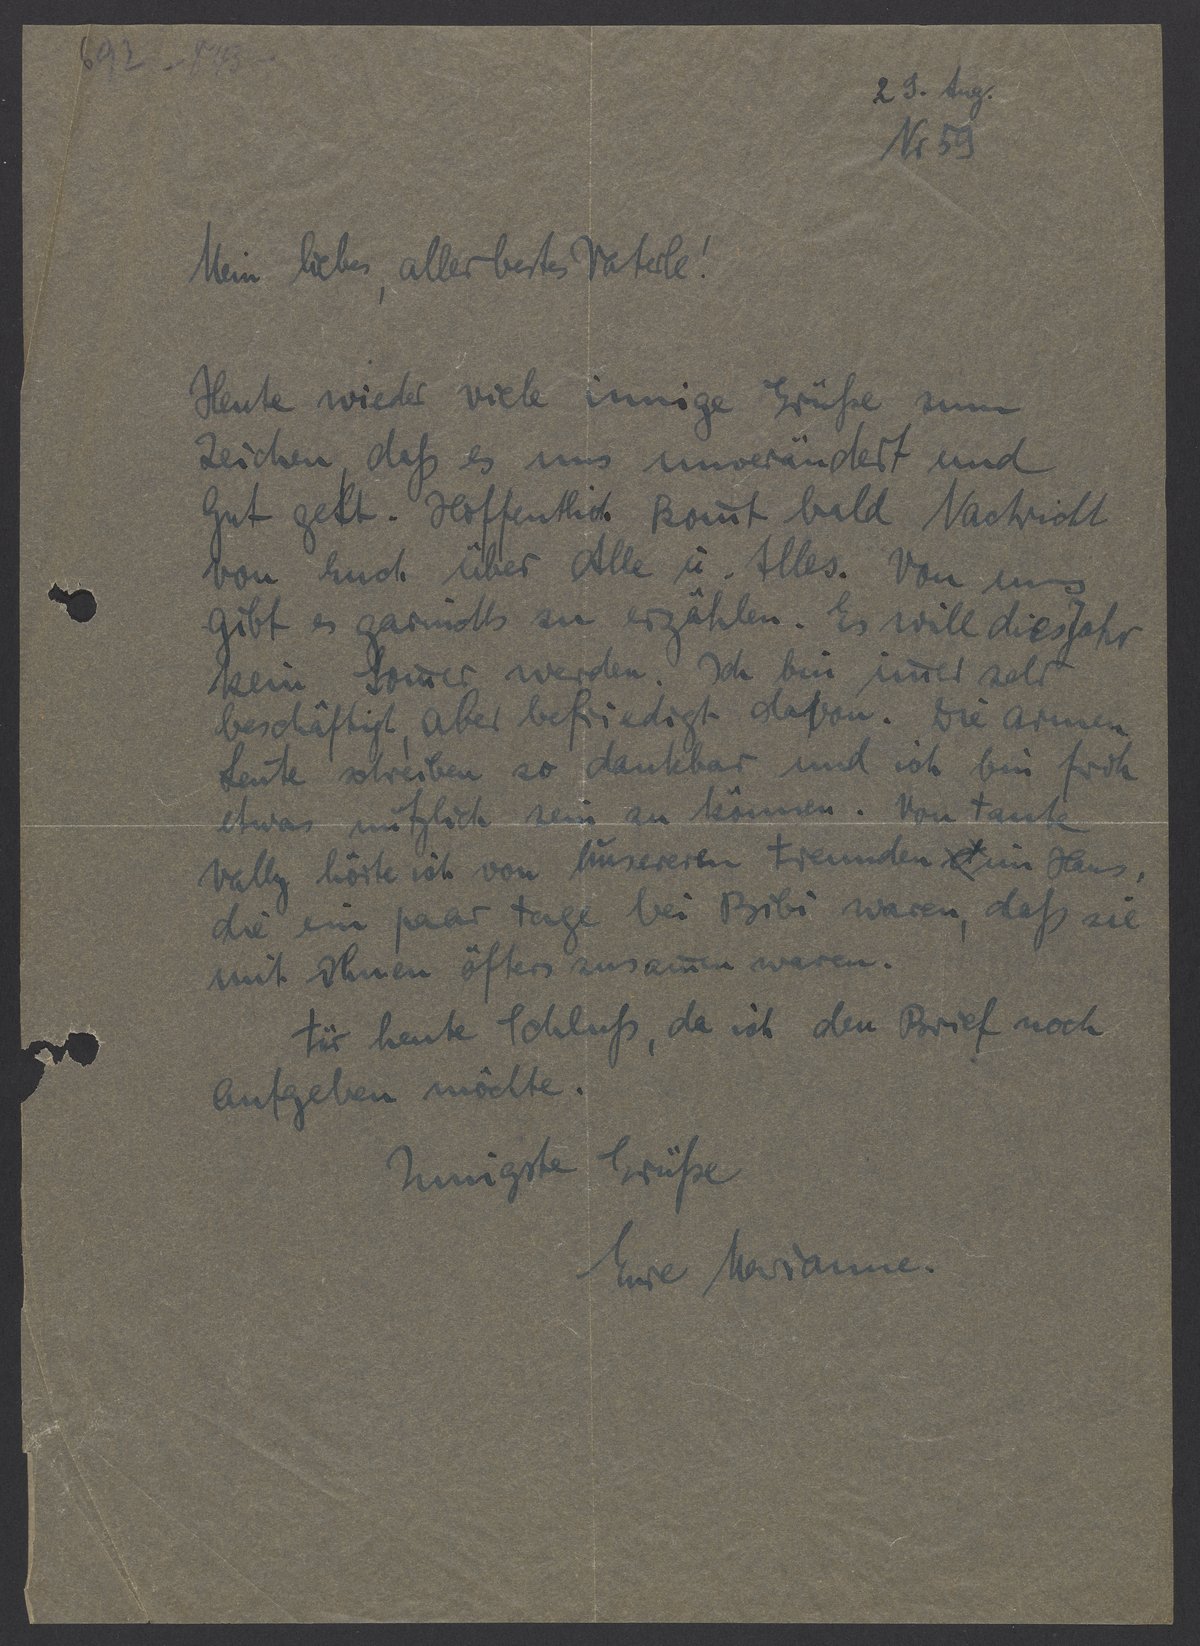 692
29. Aug.
Nr 59
Mein liebes, allerbestes Vaterle!
Heute wieder viele innige Grüße zum
Zeichen, daß es uns unverändert und
gut geht. Hoffentlich kom̅t bald Nachricht
von Euch über Alle u. Alles. Von uns
gibt es garnichts zu erzählen. Es will dies Jahr
kein Som̅er werden. Ich bin im̅er sehr
beschäftigt, aber befriedigt davon. Die armen
Leute schreiben so dankbar und ich bin froh
etwas nützlich sein zu können. Von Tante
Vally hörte ich von unsereren Freunden im Haus,
die ein paar Tage bei Bibi waren, daß sie
mit Ihnen öfters zusam̅en waren.
Für heute Schluß, da ich den Brief noch
aufgeben möchte.
Innigste Grüße
Eure Marianne.